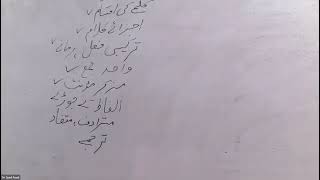 کلمے کی اقسام ✓
اجزائے کلام ✓
ترکیبی فعل، زمانے ✓
واحد جمع ✓
مذکر مونث ✓
الفاظ کے جوڑے
مترادف، متضاد
ترجمے